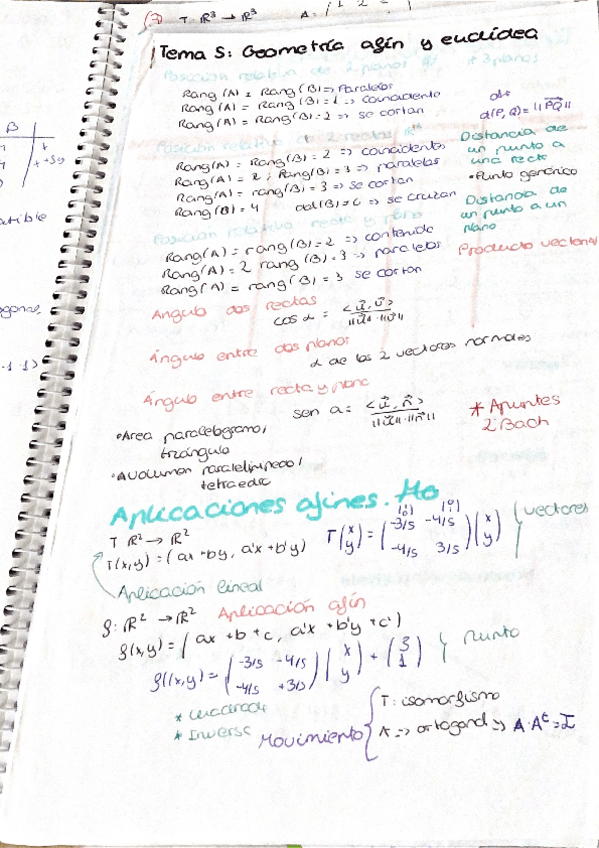 (2) T: ℝ³ → ℝ³ A = ( 1 2 =
Tema 5: Geometría afín y euclídea
Posición relativa de 2 planos * 3 planos
Rang(A) ≠ Rang(B) => Paralelos
Rang(A) = Rang(B) = 1 => coincidente
Rang(A) = Rang(B) = 2 => se cortan
Posición relativa de 2 rectas
Rang(A) = Rang(B) = 2 => coincidentes
Rang(A) = 2 ; Rang(B) = 3 => paralelas
Rang(A) = rang(B) = 3 => se cortan
Rang(B) = 4 => se cruzan
Posición relativa recta y plano
Rang(A) = rang(B) = 2 => contenido
Rang(A) = 2 rang(B) = 3 => paralelos
Rang(A) = rang(B) = 3 se cortan
d(P, Q) = ||PQ||
Distancia de
un punto a
una recta
• Punto genérico
Distancia de
un punto a un
plano
Producto vectorial
Ángulo dos rectas
cos α = <u, v> / ||u|| · ||v||
Ángulo entre dos planos
α de los 2 vectores normales
Ángulo entre recta y plano
sen α = <u, n> / ||u|| · ||n||
* Apuntes
2º Bach
• Área paralelogramo /
triángulo
Volumen paralelepípedo /
tetraedro
Aplicaciones afines.
T ℝ² → ℝ²
T(x,y) = (ax + by, a'x + b'y)
T(x y) = (-3/5 -4/5
-4/5 3/5) (x y) } vectores
Aplicación lineal
f: ℝ² → ℝ² Aplicación afín
f(x,y) = (ax + b + c, a'x + b'y + c')
f((x,y) = (-3/5 -4/5
-4/5 +3/5) (x y) + (3 1) } Punto
* Inversa
Movimiento { T: isomorfismo
A => ortogonal => A·Aᵗ = I